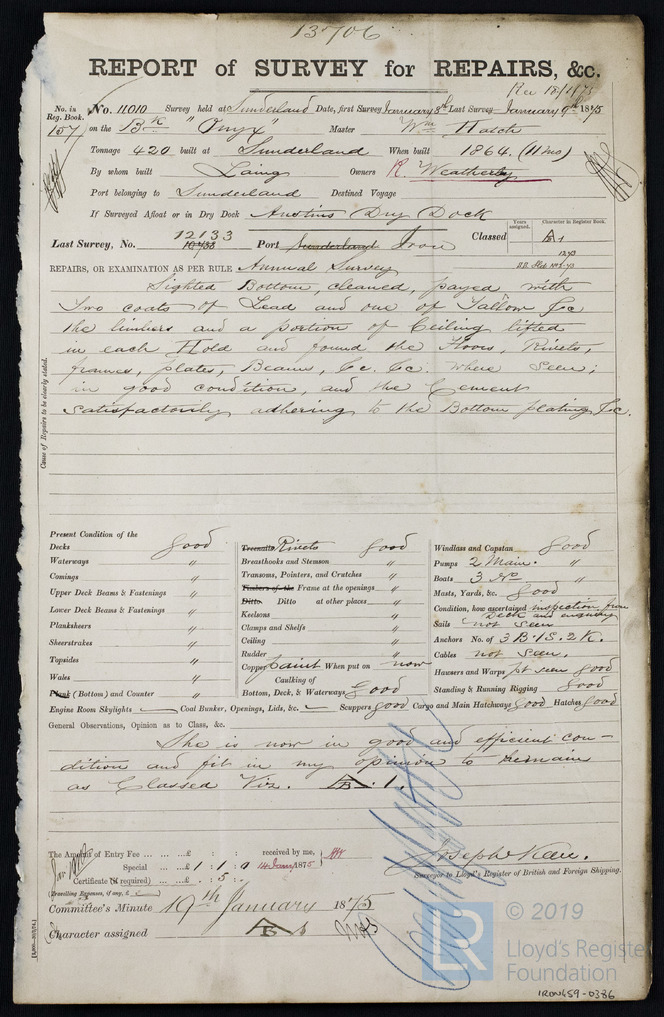 13706
REPORT of SURVEY for REPAIRS, &c.
No. in Reg. Book. No. 11010 Survey held at Sunderland Date, first Survey January 8th Last Survey January 9th 1875
157 on the Bk "Onyx" Master Wm Hatch
Tonnage 420 built at Sunderland When built 1864. (11 mo)
By whom built Laing Owners R. Weatherley
Port belonging to Sunderland Destined Voyage
If Surveyed Afloat or in Dry Dock Austins Dry Dock
Years assigned. Character in Register Book.
12133
Last Survey, No. Port Sunderland Iron Classed A 1
REPAIRS, OR EXAMINATION AS PER RULE Annual Survey
Sighted Bottom, cleaned, payed with
Two coats of Lead and one of Tallow &c
the limbers and a portion of Ceiling lifted
in each Hold and found the Floors, Rivets,
frames, plates, Beams, &c. &c. where seen;
in good condition, and the Cement
satisfactorily adhering to the Bottom plating &c.
Cause of Repairs to be clearly stated.
Present Condition of the
Decks good
Waterways "
Comings "
Upper Deck Beams & Fastenings "
Lower Deck Beams & Fastenings "
Planksheers "
Sheerstrakes "
Topsides "
Wales "
Plank (Bottom) and Counter "
Treenails Rivets good
Breasthooks and Stemson "
Transoms, Pointers, and Crutches "
Timbers of the Frame at the openings "
Ditto Ditto at other places "
Keelsons "
Clamps and Shelfs "
Ceiling "
Rudder "
Copper paint When put on now
Caulking of
Bottom, Deck, & Waterways Good
Windlass and Capstan good
Pumps 2 Main. "
Boats 3 No "
Masts, Yards, &c. good
Condition, how ascertained inspection from
Deck and enquiry
Sails not seen
Anchors No. of 3 B. 1 S. 2 K.
Cables not seen.
Hawsers and Warps seen good
Standing & Running Rigging good
Engine Room Skylights Coal Bunker, Openings, Lids, &c. Scuppers good Cargo and Main Hatchways good Hatches good
General Observations, Opinion as to Class, &c.
She is now in good and efficient con-
dition and fit in my opinion to remain
as Classed Viz. A 1.
The Amount of Entry Fee ... £ : : received by me,
Special ... £ 1 : 1 : 0 14 Jany 1875
Certificate (if required) : 5 :
(Travelling Expenses, if any, £ )
Joseph Keen.
Surveyor to Lloyd's Register of British and Foreign Shipping.
Committee's Minute 19th January 1875
Character assigned A 1
© 2019
Lloyd's Register
Foundation
IRON459-0386